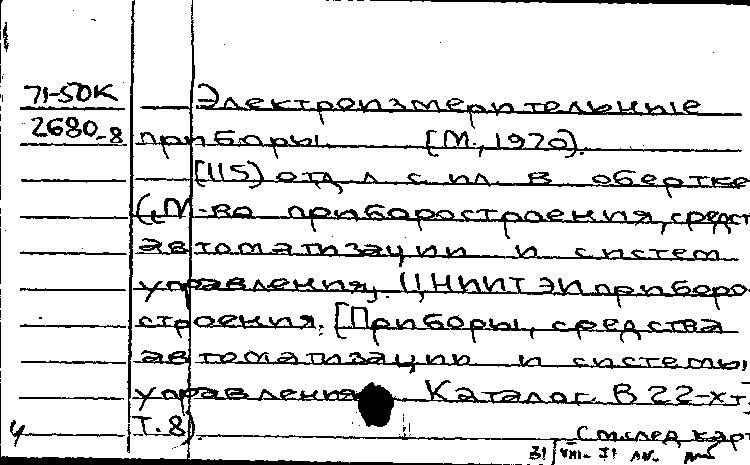 71-50К Электроизмерительные
2680-8 приборы. [М., 1970].
[115] отд. л. с ил. в обертке
(М-во приборостроения, средст
автоматизации и систем
управления. ЦНИИТЭИприборо
строения. [Приборы, средства
автоматизации и системы
управления. Каталог. В 22-х т.
Т. 8)
См. след. карт